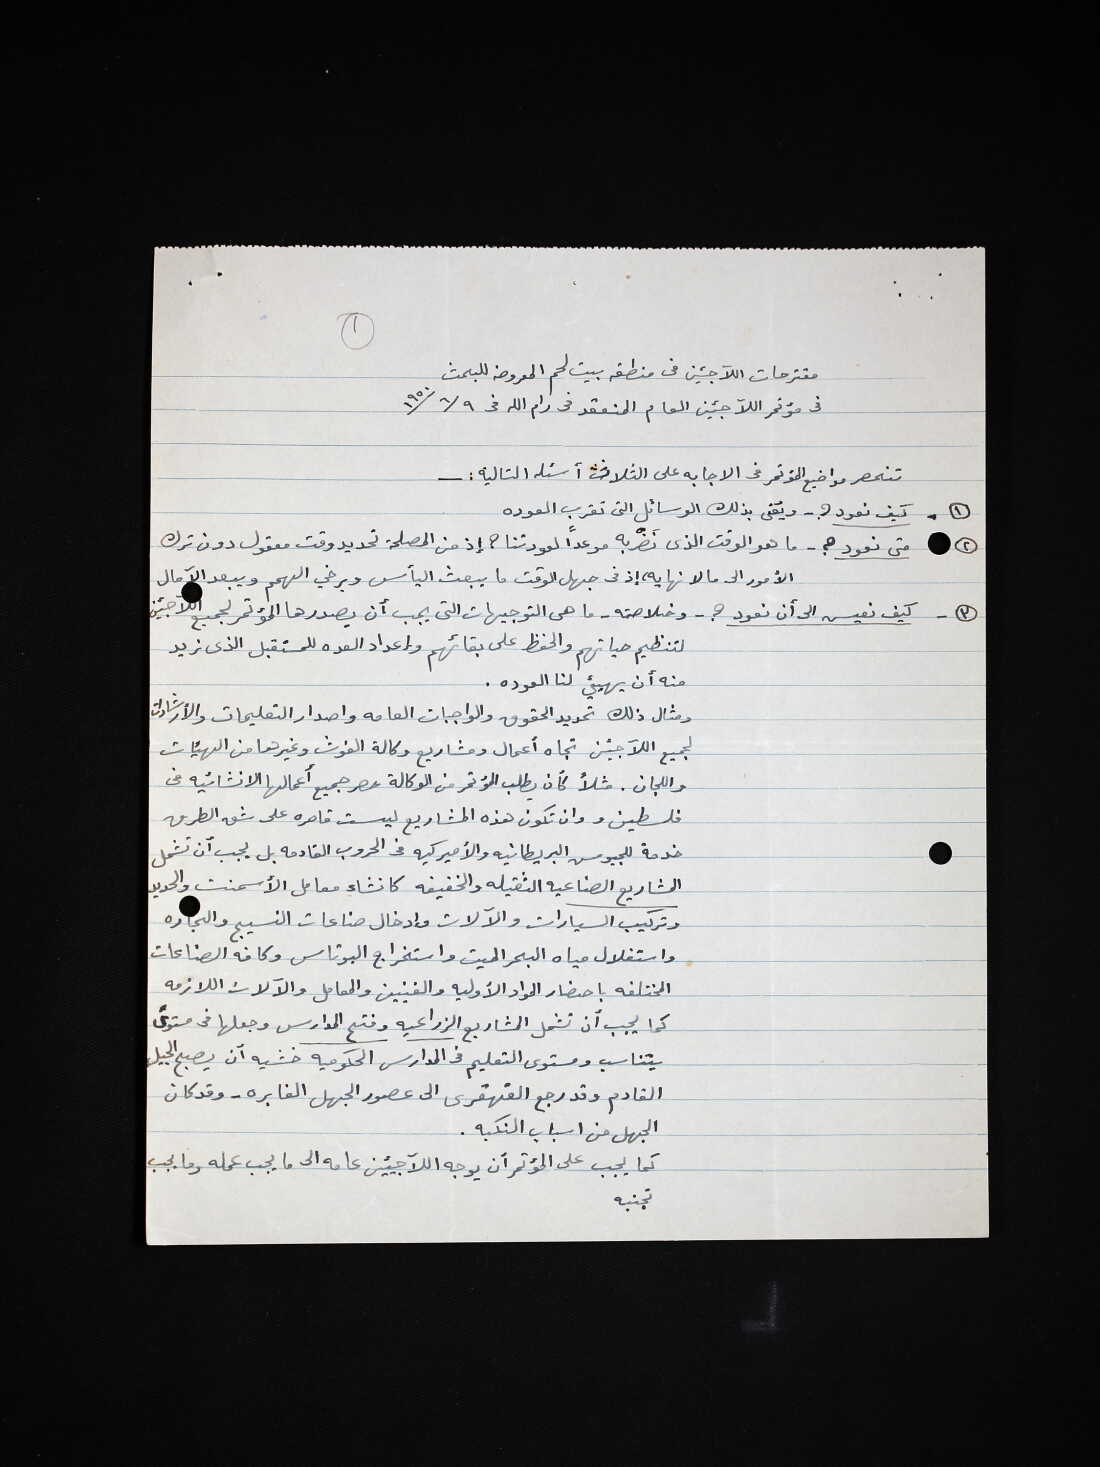 ١
مقترحات اللآجئين فى منطقه بيت لحم المعروضه للبحث
فى مؤتمر اللآجئين العام المنعقد فى رام الله فى ٩/٦/١٩٥٠
تنحصر مواضيع المؤتمر فى الاجابه على الثلاث أسئله التاليه :ـ
١ - كيف نعود ؟ - ويعنى بذلك الوسائل التى تقرب العوده
٢ متى نعود ؟ - ما هو الوقت الذى نضربه موعداً لعودتنا ؟ إذ من المصلحة تحديد وقت معقول دون ترك
الأمور الى ما لا نهايه، إذ فى جهل الوقت ما يبعث اليأس ويرخي الهمم ويبعد الآمال
٣ - كيف نعيش الى أن نعود ؟ - وخلاصته - ما هى التوجيهات التى يجب أن يصدرها المؤتمر لجميع اللآجئين
لتنظيم حياتهم والحفظ على بقائهم وإعداد العده للمستقبل الذى نريد
منه أن يهيئ لنا العوده .
ومثال ذلك تحديد الحقوق والواجبات العامه واصدار التعليمات والأرشادات
لجميع اللآجئين تجاه أعمال ومشاريع وكالة الغوث وغيرها من الهيئات
واللجان . مثلاً كأن يطلب المؤتمر من الوكالة حصر جميع أعمالها الانشائيه فى
فلسطين و وان تكون هذه المشاريع ليست قاصره على شق الطرق
خدمة للجيوس البريطانيه والأميركيه فى الحروب القادمه بل يجب أن تشمل
المشاريع الصناعيه الثقيله والخفيفه كانشاء معامل الأسمنت والحديد
وتركيب السيارات والآلات وإدخال صناعات النسيج والنجاره
واستغلال مياه البحر الميت واستخراج البوتاس وكافه الصناعات
المختلفه باحضار المواد الأوليه والفنيين والمعامل والآلات اللازمه
كما يجب أن تشمل المشاريع الزراعيه وفتح المدارس وجعلها فى مستوًى
يتناسب ومستوى التعليم فى المدارس الحكوميه خشيه أن يصبح الجيل
القادم وقد رجع القهقرى الى عصور الجهل الغابره - وقد كان
الجهل من اسباب النكبه .
كما يجب على المؤتمر أن يوجه اللآجئين عامه الى ما يجب عمله وما يجب
تجنبه